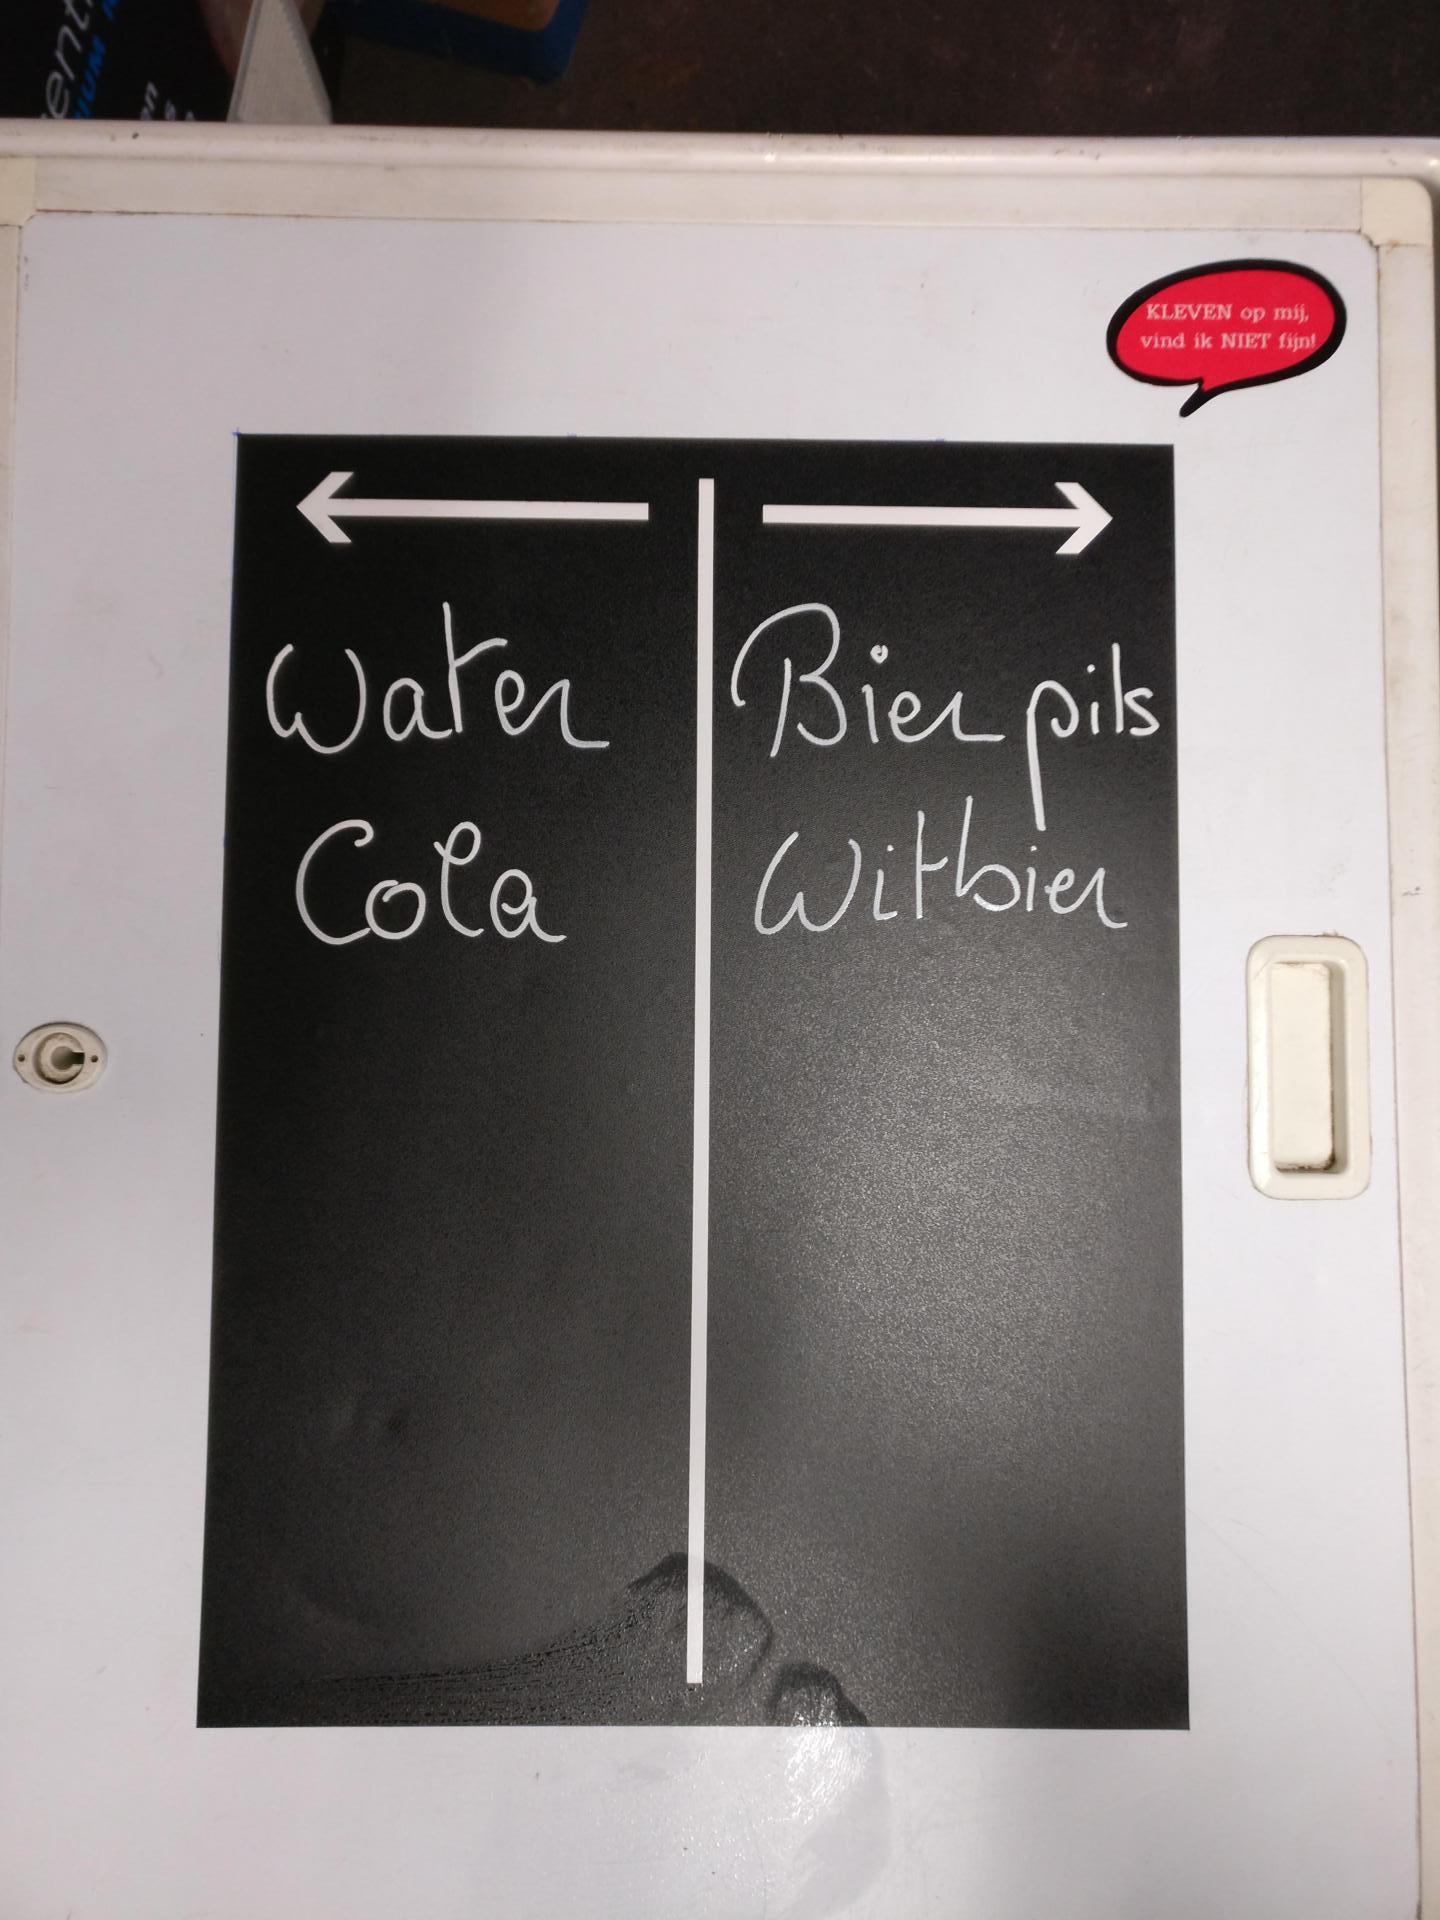 KLEVEN op mij,
vind ik NIET fijn!
Water
Cola
Bier pils
Witbier